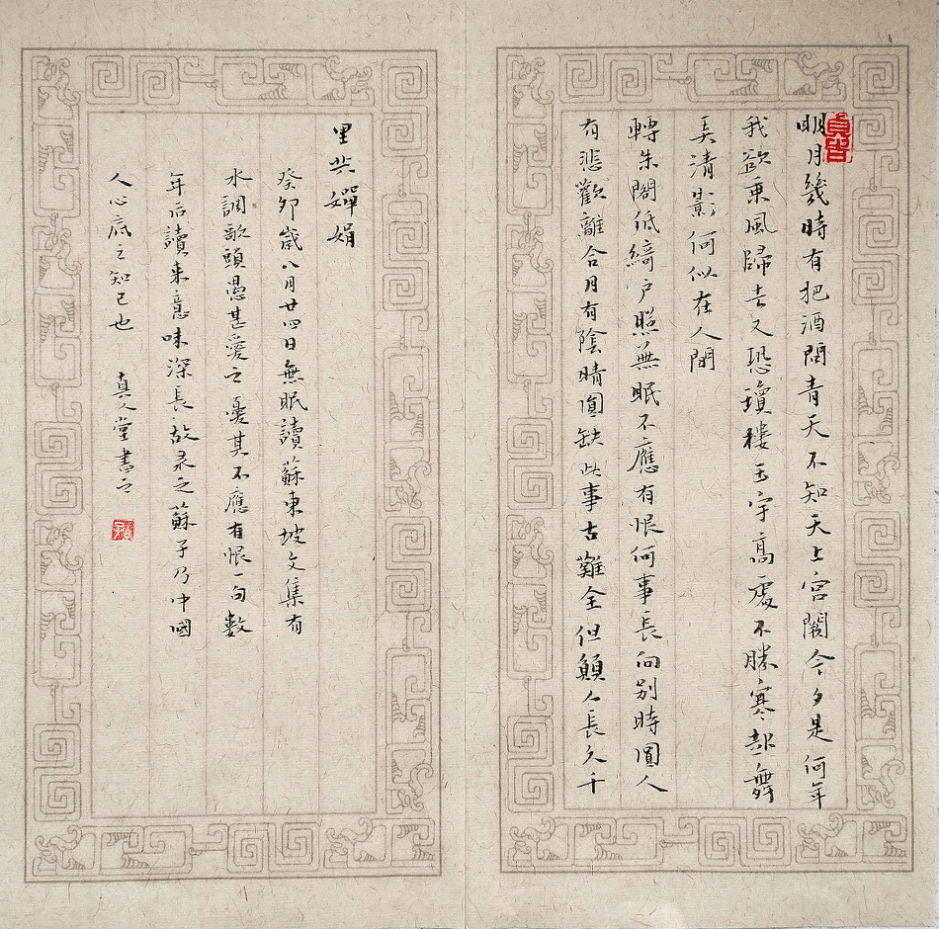 明月幾時有把酒問青天不知天上宮闕今夕是何年
我欲乘風歸去又恐瓊樓玉宇高處不勝寒起舞
弄清影何似在人間
轉朱閣低綺户照無眠不應有恨何事長向别時圓人
有悲歡離合月有陰晴圓缺此事古難全但願人長久千
里共嬋娟
癸卯歲八月廿四日無眠讀蘇東坡文集有
水調歌頭愚甚愛之憂其不應有恨一句數
年后讀来意味深長故录之蘇子乃中國
人心底之知己也 真人堂書之